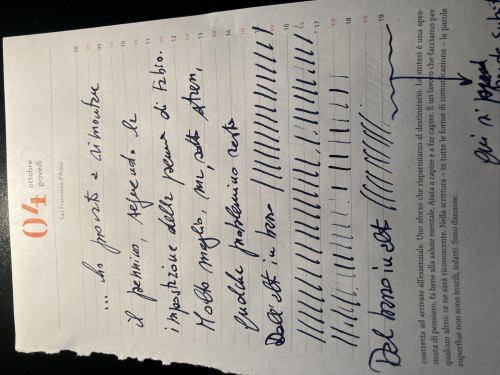 04
ottobre
giovedì
San Francesco d'Assisi
08
09
10
11
12
13
14
15
16
17
18
19
... ho provato a rimontare
il pennino, seguendo la
impostazione della penna di Fabio.
Molto meglio, ma, sotto stress,
qualche problemino resta
Dall'alto in basso
Dal basso in alto
qui si
costretta ad arrivare all'essenziale. Uno sforzo che risparmiamo al destinatario. La sintesi è una spre-
muta di pensiero, fa bene alla salute mentale. Aiuta a capire e a far capire. È un lavoro che facciamo per
qualcun altro: ce ne sarà riconoscente. Nella scrittura – in tutte le forme di comunicazione – le parole
superflue non sono inutili, infatti. Sono dannose.